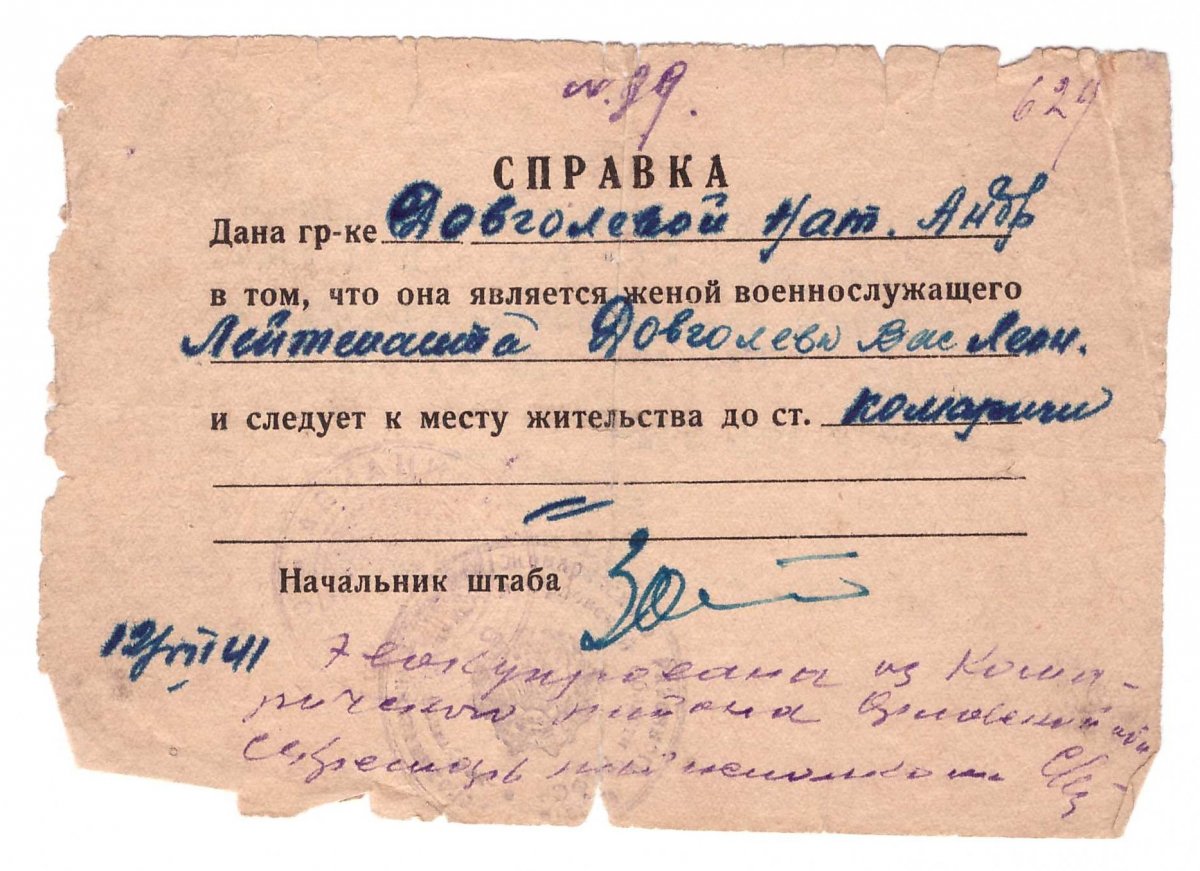 N. 99.
629
СПРАВКА
Дана гр-ке Довголевой Нат. Андр
в том, что она является женой военнослужащего
Лейтенанта Довголева Вас Леон.
и следует к месту жительства до ст. Комаричи
Начальник штаба
12/VII 41
Эвакуирована из Кома-
ричского района Орловской обл
Секретарь райисполкома